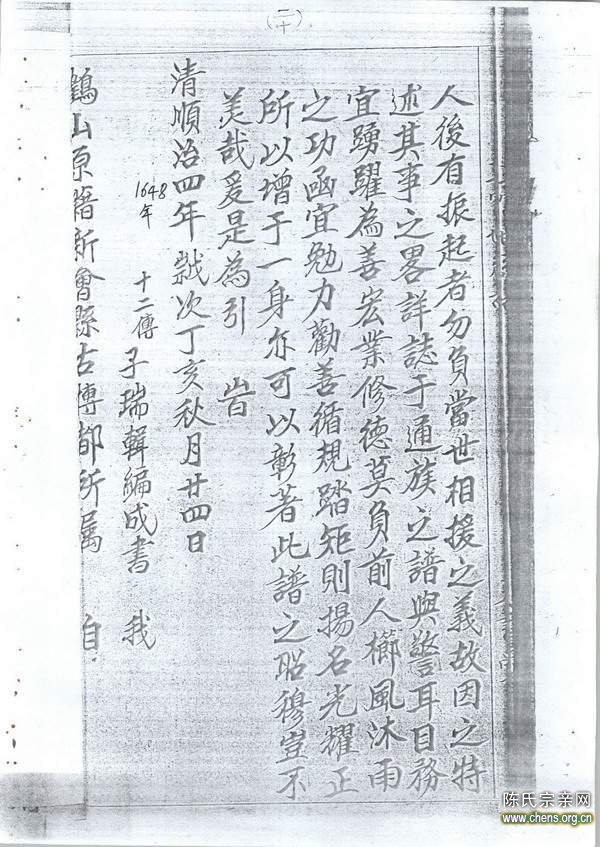 (二十)
人後有振起者勿負當世相援之義故因之特
述其事之畧詳誌于通族之譜與警耳目務
宜踴躍為善宏業修德莫負前人櫛風沐雨
之功函宜勉力勸善循規踏矩則揚名光耀正
所以增于一身亦可以彰著此譜之昭穆豈不
美哉爰是為引 旹
清順治四年 次丁亥秋月廿四日
1648年
十二傳 子瑞輯編成書 我
鶴山原籍新會縣古博都所属 自
陈氏宗亲网
www.chens.org.cn